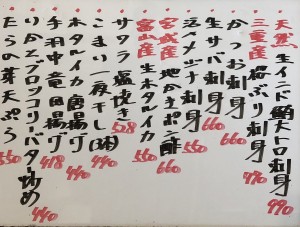 天然 生インド鮪大トロ刺身 990
三重産 桜ぶり刺身 770
かつお刺身 660
生サバ刺身 660
活〆イサキ刺身
宮城産 地かきポン酢 660
富山産 生ホタルイカ 550
サワラ塩焼き 528
こまい一夜干し 440
ホタルイカ唐揚げ 440
手羽中竜田揚げ 418
りかとブロッコリバター炒め 440
たらの芽天ぷら 550